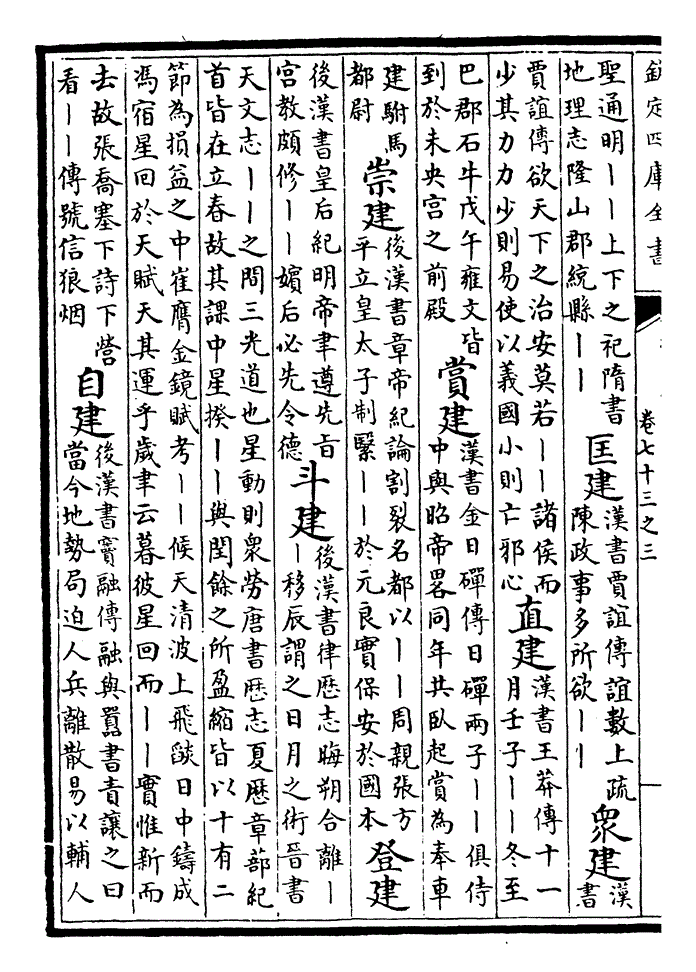 欽定四庫全書
卷七十三之三
聖通明丨丨上下之祀隋書
地理志隆山郡統縣丨丨
匡建
漢書賈誼傳誼數上疏
陳政事多所欲丨丨
眾建
漢
書
賈誼傳欲天下之治安莫若丨丨諸侯而
少其力力少則易使以義國小則亡邪心
直建
漢書王莽傳十一
月壬子丨丨冬至
巴郡石牛戊午雍文皆
到於未央宮之前殿
賞建
漢書金日磾傳日磾兩子丨丨俱侍
中與昭帝畧同年共臥起賞為奉車
建駙馬
都尉
崇建
後漢書章帝紀論割裂名都以丨丨周親張方
平立皇太子制繄丨丨於元良實保安於國本
登建
後漢書皇后紀明帝聿遵先旨
宮教頗修丨丨嬪后必先令德
斗建
後漢書律歴志晦朔合離丨
丨移辰謂之日月之術晉書
天文志丨丨之間三光道也星動則衆勞唐書歴志夏歴章蔀紀
首皆在立春故其課中星揆丨丨與閏餘之所盈縮皆以十有二
節為損益之中崔膺金鏡賦考丨丨候天清波上飛燄日中鑄成
馮宿星回於天賦天其運乎歲聿云暮彼星回而丨丨實惟新而
去故張喬塞下詩下營
看丨丨傳號信狼烟
自建
後漢書竇融傳融與囂書責讓之曰
當今地勢局迫人兵離散易以輔人